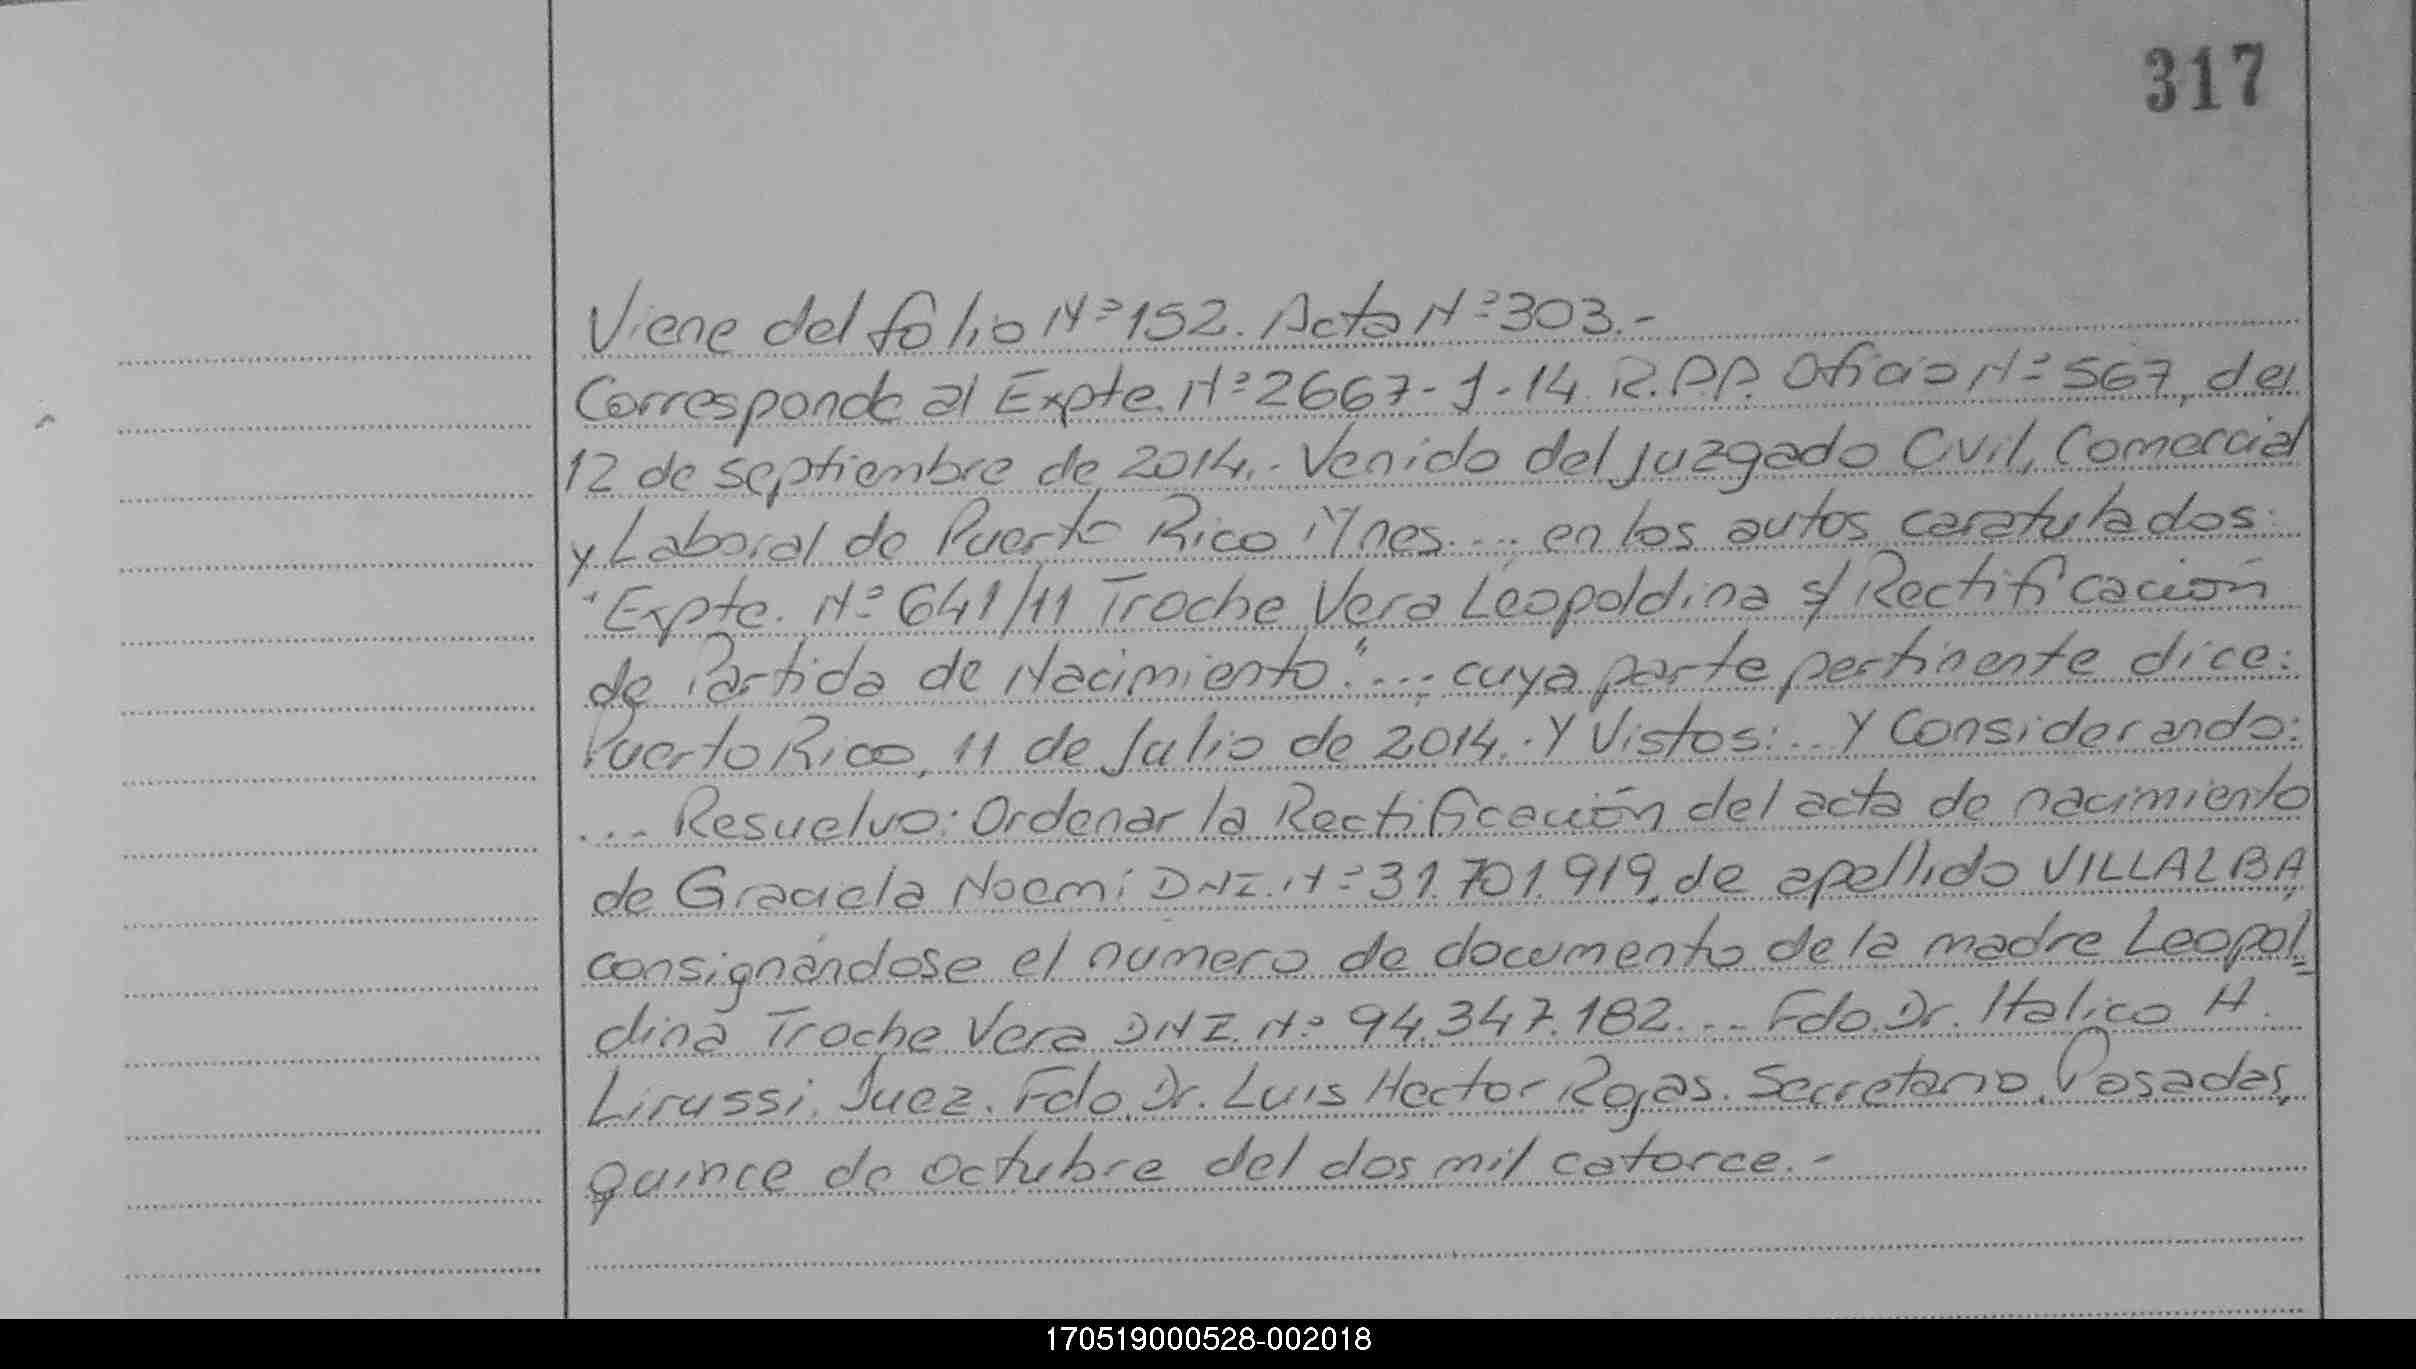 317
Viene del folio Nº 152. Acta Nº 303.-
Corresponde al Expte. Nº 2667-J-14. R.P.P. Oficio Nº 567, del
12 de septiembre de 2014.- Venido del Juzgado Civil, Comercial
y Laboral de Puerto Rico Mnes.... en los autos caratulados:
"Expte. Nº 641/11 Troche Vera Leopoldina s/ Rectificación
de Partida de Nacimiento".... cuya parte pertinente dice:
Puerto Rico, 11 de Julio de 2014.- Y Vistos:... Y Considerando:
.... Resuelvo: Ordenar la Rectificación del acta de nacimiento
de Graciela Noemi DNI. Nº 31.701.919, de apellido VILLALBA,
consignándose el numero de documento de la madre Leopol=
dina Troche Vera DNI. Nº 94.347.182.... Fdo. Dr. Italico A.
Lirussi. Juez. Fdo. Dr. Luis Hector Rojas. Secretario. Posadas,
quince de octubre del dos mil catorce.-
170519000528-002018